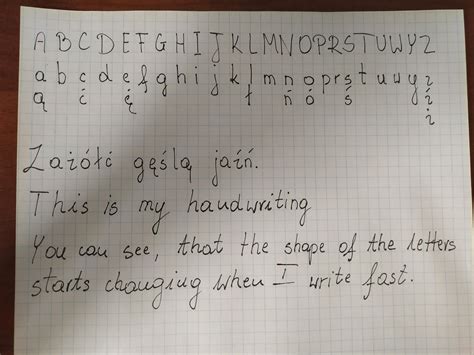 A B C D E F G H I J K L M N O P R S T U W Y Z
a b c d e f g h i j k l m n o p r s t u w y z
ą ć ę ł ń ó ś ź ż
Zażółć gęślą jaźń.
This is my handwriting
You can see, that the shape of the letters
starts changing when I write fast.